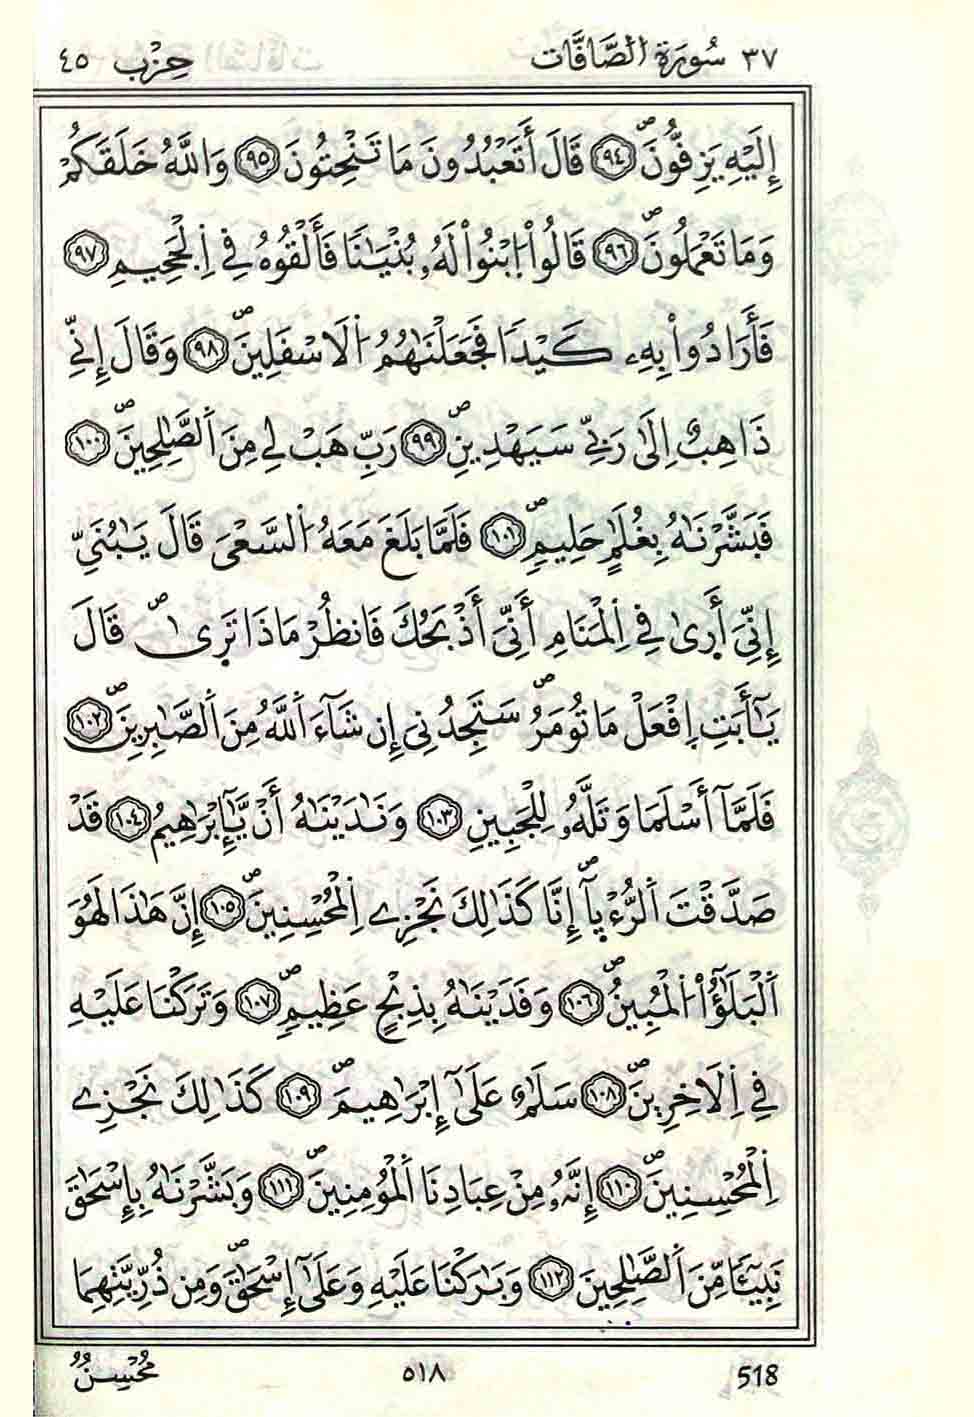 ٣٧ سُورَةُ الصَّافَّات حِزْب ٤٥
إِلَيْهِ يَزِفُّونَۖ ٩٤ قَالَ أَتَعْبُدُونَ مَا تَنْحِتُونَ ٩٥ وَاللَّهُ خَلَقَكُمْ
وَمَا تَعْمَلُونَۖ ٩٦ قَالُواْ اُ۪بْنُواْ لَهُۥ بُنْيَٰنٗا فَأَلْقُوهُ فِے اِ۬لْجَحِيمِ ٩٧
فَأَرَادُواْ بِهِۦ كَيْدٗا فَجَعَلْنَٰهُمُ اُ۬لَاسْفَلِينَۖ ٩٨ وَقَالَ إِنِّے
ذَاهِبٌ اِلَىٰ رَبِّے سَيَهْدِينِۖ ٩٩ رَبِّ هَبْ لِے مِنَ اَ۬لصَّٰلِحِينَۖ ١٠٠
فَبَشَّرْنَٰهُ بِغُلَٰمٍ حَلِيمٖۖ ١٠١ فَلَمَّا بَلَغَ مَعَهُ اُ۬لسَّعْىَ قَالَ يَٰبُنَيِّ
إِنِّىَ أَر۪ىٰ فِے اِ۬لْمَنَامِ أَنِّىَ أَذْبَحُكَ فَانظُرْ مَاذَا تَر۪ىٰۖ قَالَ
يَٰٓأَبَتِ اِ۪فْعَلْ مَا تُومَرُۖ سَتَجِدُنِيَ إِن شَآءَ اَ۬للَّهُ مِنَ اَ۬لصَّٰبِرِينَۖ ١٠٢
فَلَمَّآ أَسْلَمَا وَتَلَّهُۥ لِلْجَبِينِ ١٠٣ وَنَٰدَيْنَٰهُ أَنْ يَّٰٓإِبْرَٰهِيمُ ١٠٤ قَدْ
صَدَّقْتَ اَ۬لرُّءْي۪آۖ إِنَّا كَذَٰلِكَ نَجْزِے اِ۬لْمُحْسِنِينَۖ ١٠٥ إِنَّ هَٰذَا لَهُوَ
اَ۬لْبَلَٰٓؤُاْ اُ۬لْمُبِينُۖ ١٠٦ وَفَدَيْنَٰهُ بِذِبْحٍ عَظِيمٖۖ ١٠٧ وَتَرَكْنَا عَلَيْهِ
فِے اِ۬لَاخِرِينَۖ ١٠٨ سَلَٰمٌ عَلَىٰٓ إِبْرَٰهِيمَۖ ١٠٩ كَذَٰلِكَ نَجْزِے
اِ۬لْمُحْسِنِينَۖ ١١٠ إِنَّهُۥ مِنْ عِبَادِنَا اَ۬لْمُومِنِينَۖ ١١١ وَبَشَّرْنَٰهُ بِإِسْحَٰقَ
نَبِيٓـٔٗا مِّنَ اَ۬لصَّٰلِحِينَ ١١٢ وَبَٰرَكْنَا عَلَيْهِ وَعَلَىٰٓ إِسْحَٰقَۖ وَمِن ذُرِّيَّتِهِمَا
مُحْسِنٌ ٥١٨ 518